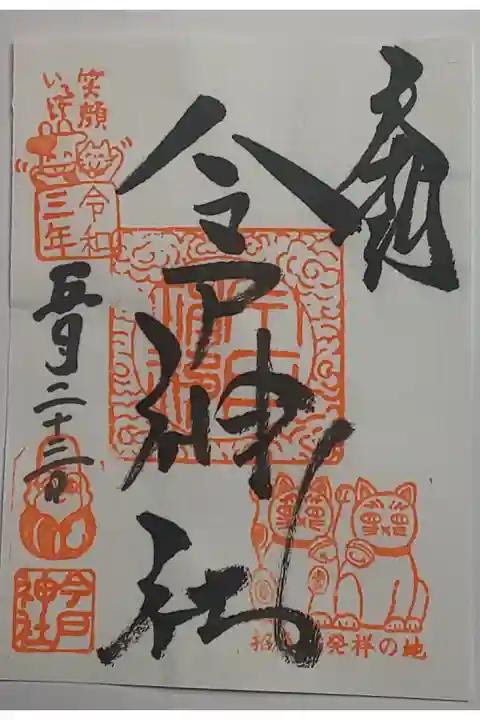 奉拝
今戸神社
笑顔
いっぱい
令和
三年
五月二十三日
今戸
神社
発祥の地